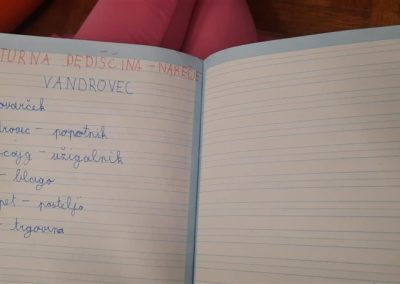 TURNA DEDIŠČINA - NAREČJE
VANDROVEC
ovarček
drovec - popotnik
cajg - vžigalnik
- blago
pet - posteljo
- trgovina